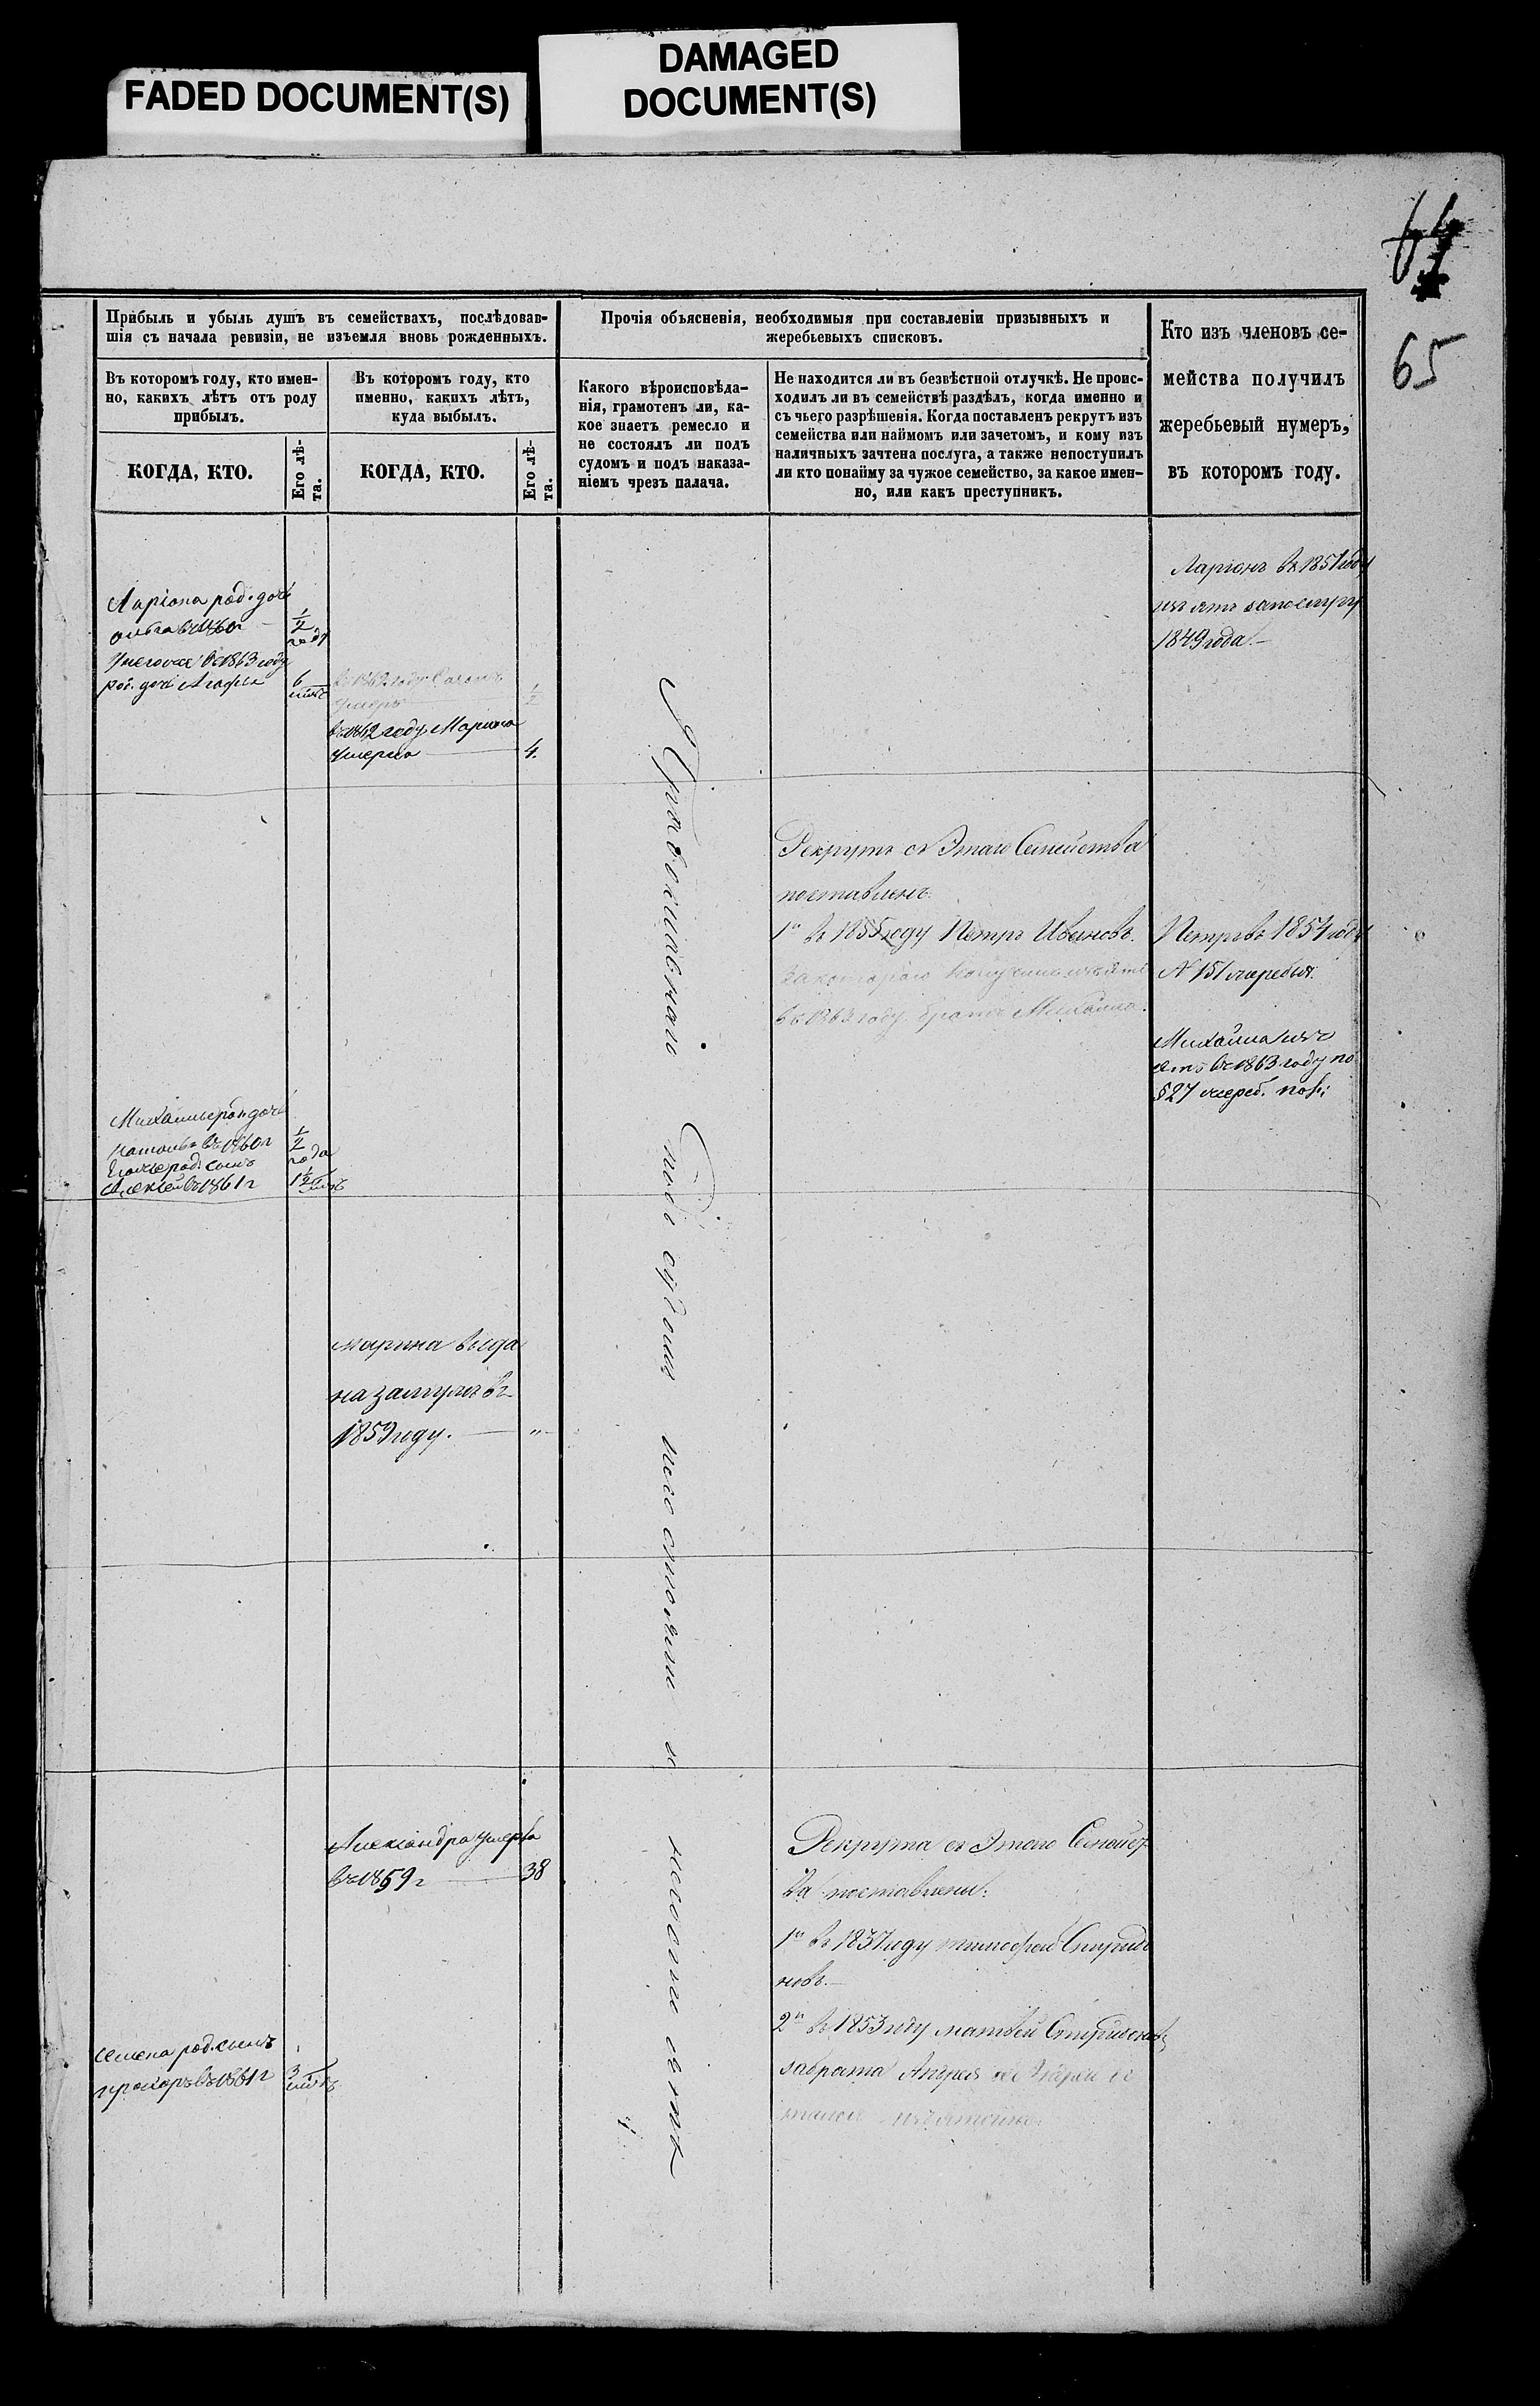 FADED DOCUMENT(S)
DAMAGED
DOCUMENT(S)
64
65
Прибыль и убыль душъ въ семействахъ, послѣдовав-
шія съ начала ревизіи, не изъемля вновь рожденныхъ.
Прочія объясненія, необходимыя при составленіи призывныхъ и
жеребьевыхъ списковъ.
Кто изъ членовъ се-
мейства получилъ
жеребьевый нумеръ,
въ которомъ году.
Въ которомъ году, кто имен-
но, какихъ лѣтъ отъ роду
прибылъ.
Въ которомъ году, кто
именно, какихъ лѣтъ,
куда выбылъ.
Какого вѣроисповѣда-
нія, грамотенъ ли, ка-
кое знаетъ ремесло и
не состоялъ ли подъ
судомъ и подъ наказа-
ніемъ чрезъ палача.
Не находится ли въ безвѣстной отлучкѣ. Не проис-
ходилъ ли въ семействѣ раздѣлъ, когда именно и
съ чьего разрѣшенія. Когда поставленъ рекрутъ изъ
семейства или наймомъ или зачетомъ, и кому изъ
наличныхъ зачтена послуга, а также непоступилъ
ли кто понайму за чужое семейство, за какое имен-
но, или какъ преступникъ.
КОГДА, КТО.
Его лѣ-
та.
КОГДА, КТО.
Его лѣ-
та.
Ларіонъ въ 1851 году
изъятъ
1849 года.
Ларіона род. дочь
въ 1860 г
1/2
года
въ 1863 году
род. дочь Агафья
6
въ 1862 году
умеръ
1/2
въ 1862 году Марина
умерла
4.
Православнаго
подъ судомъ
Рекрутъ съ Этаго Семейства
поставленъ:
1й въ 1855 году Петръ Ивановъ.
въ 1863 году братъ Михайла.
Петръ въ 1854 году
№ 151 жеребья.
Михайла изъ
ятъ въ 1863 году по
§ 27 жереб. пол:
Михайлы род. дочь
въ 1860 г
1/2
года
род. сынъ
Алексѣй въ 1861 г
1 1/2
Марина выда
на замужъ въ
1859 году.
"
Александра умерла
въ 1859 г
38
Рекрута съ Этаго Семейст
ва поставлены:
1й въ 1837 году Тимофей Спиридо
новъ.
2й въ 1853 году Матвей Спиридоновъ
за брата Андрея
Семена род. сынъ
въ 1861 г
3